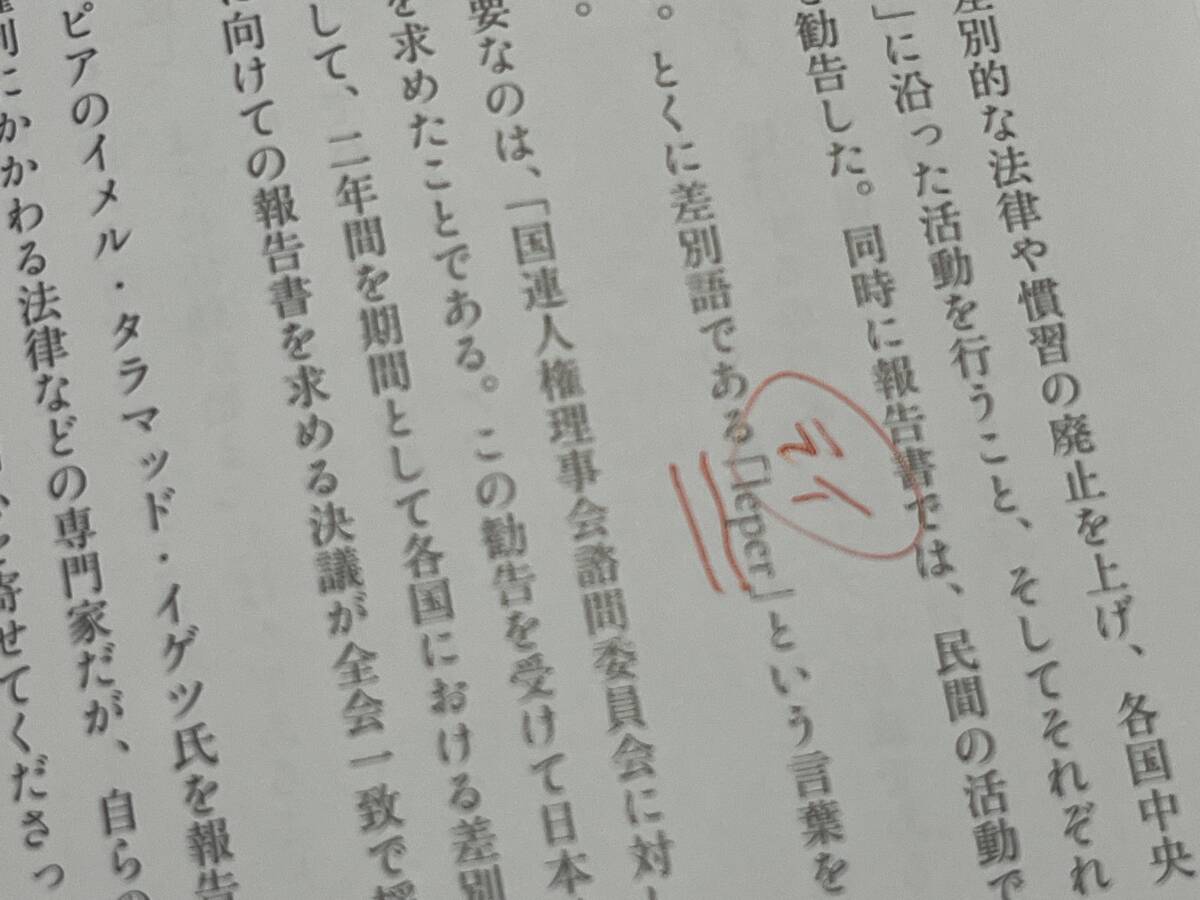 差別的な法律や慣習の廃止を上げ、各国中央
」に沿った活動を行うこと、そしてそれぞれ
勧告した。同時に報告書では、民間の活動で
。とくに差別語である「leper」という言葉を
。
要なのは、「国連人権理事会諮問委員会に対
を求めたことである。この勧告を受けて日本
して、二年間を期間として各国における差別
に向けての報告書を求める決議が全会一致で採
ピアのイメル・タラマッド・イゲツ氏を報告
権利にかかわる法律などの専門家だが、自らの
寄せてくださっ